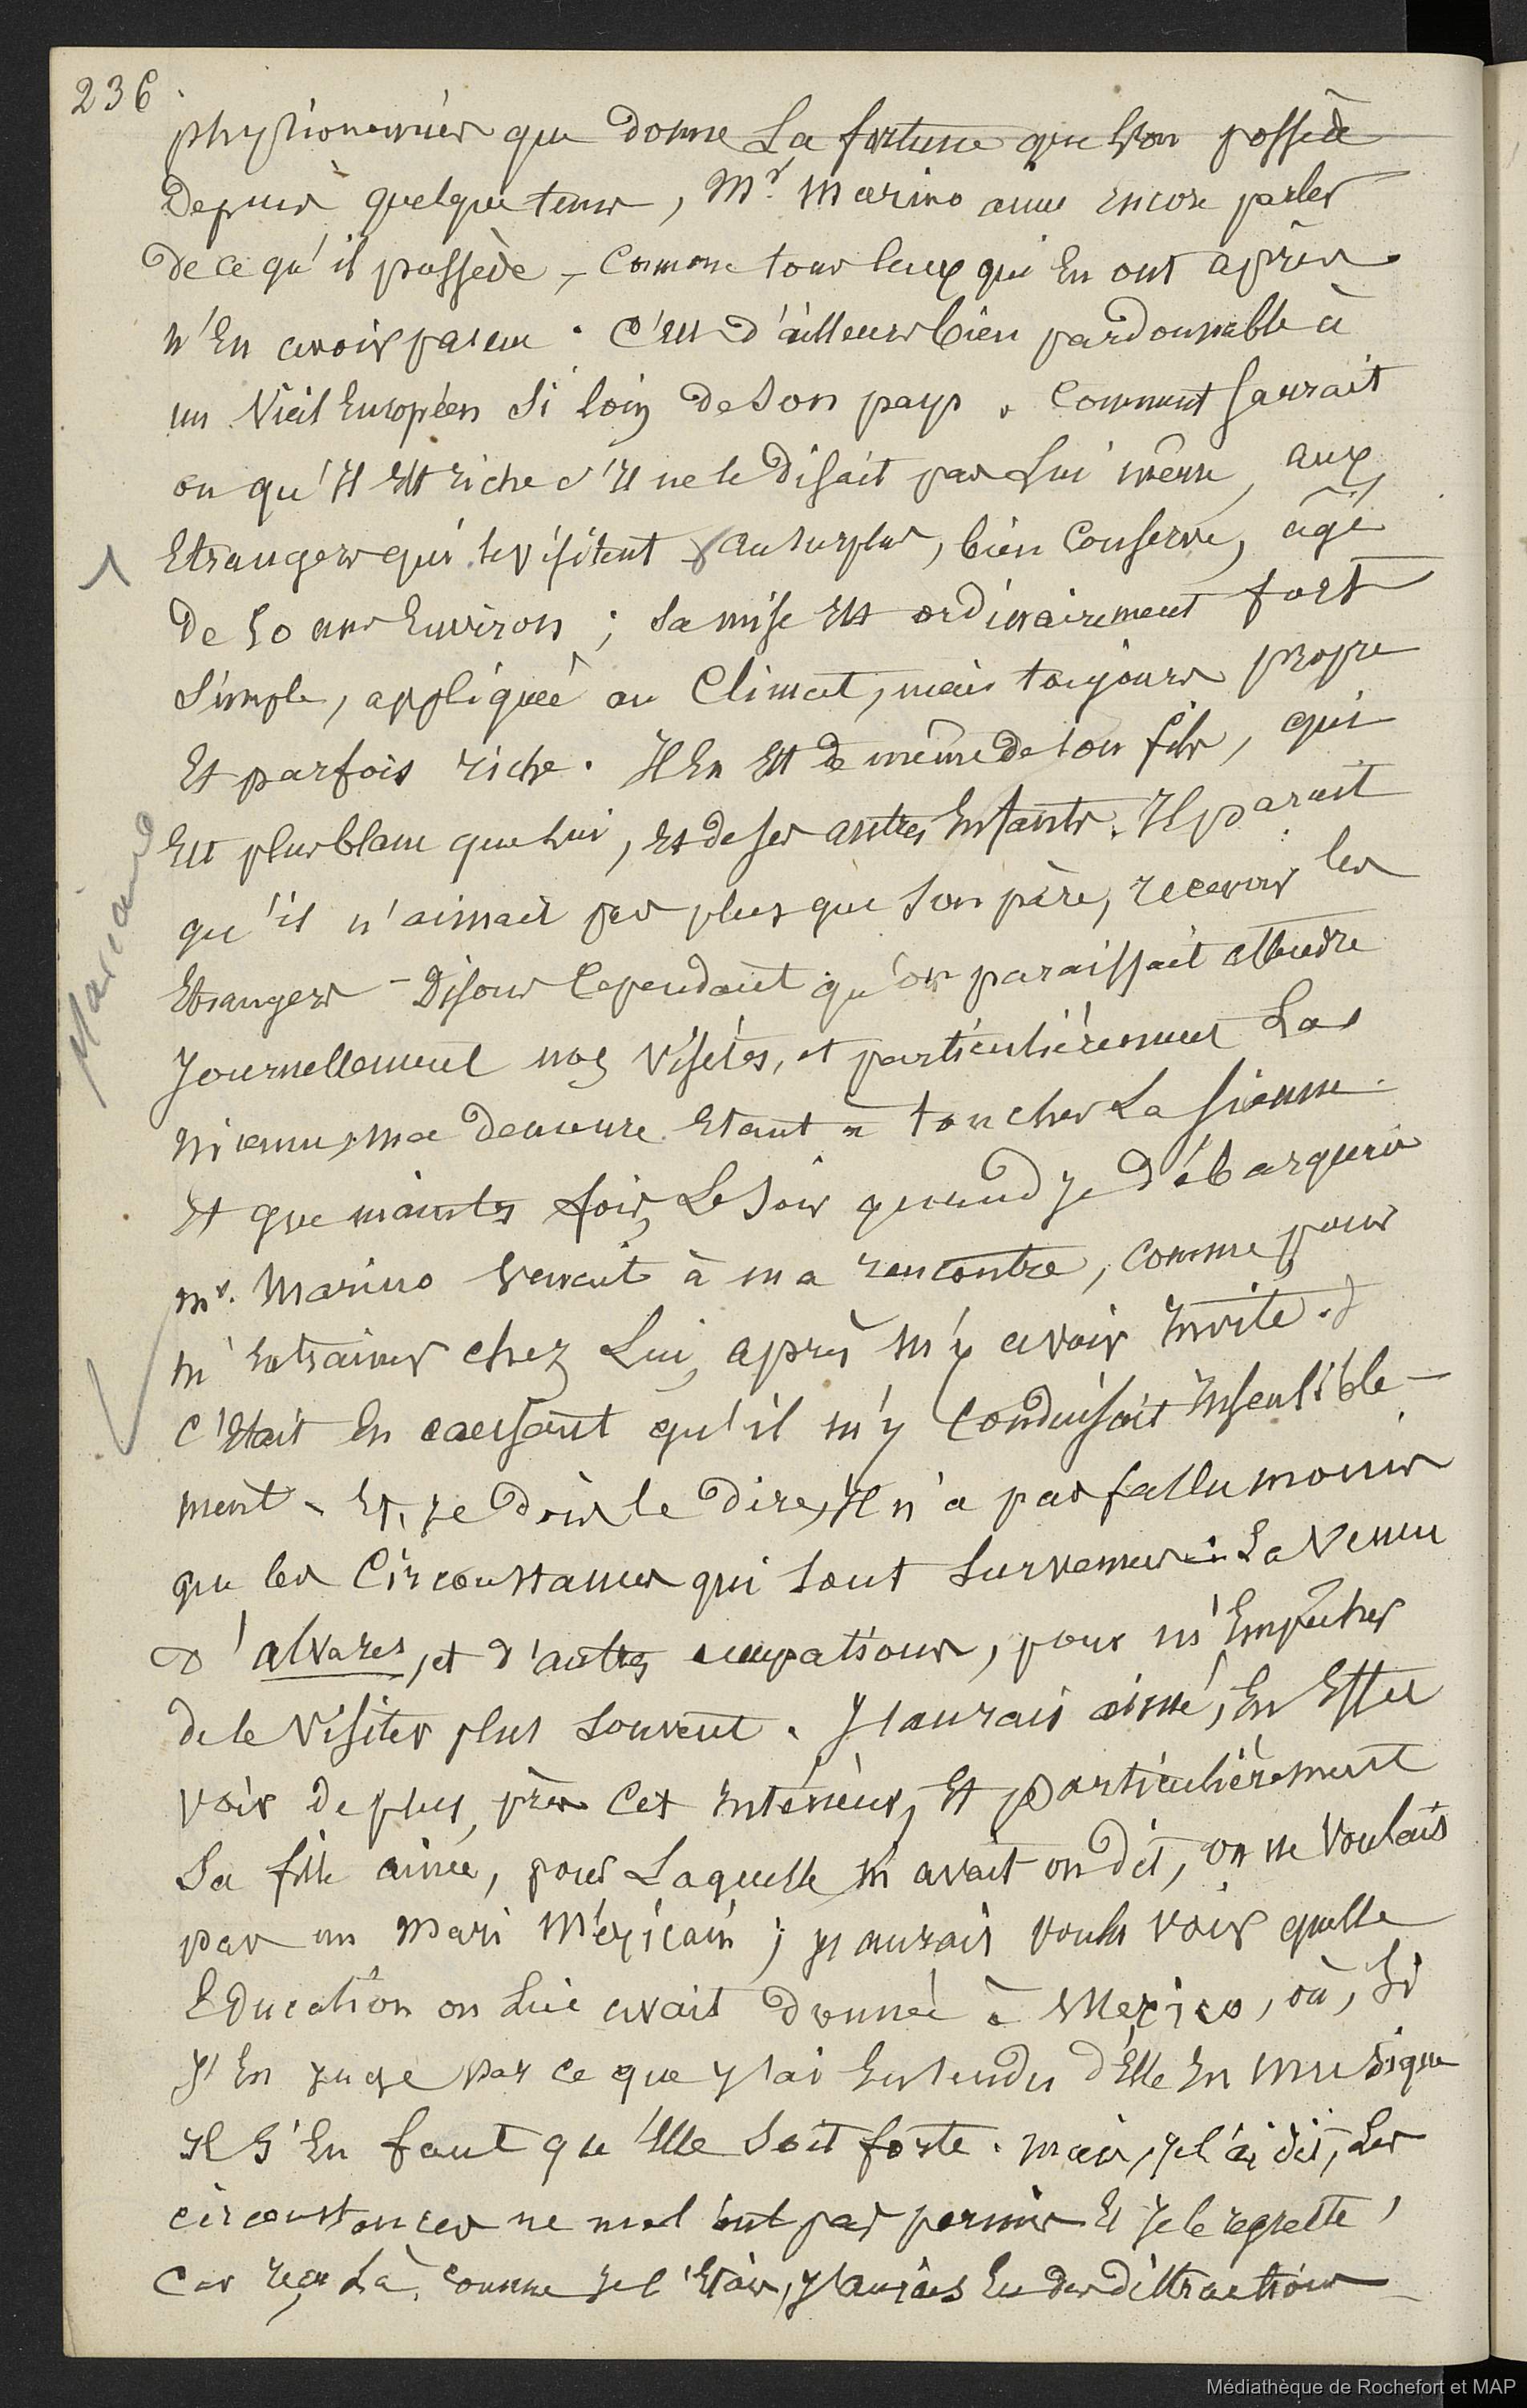 236
physionomies que donne La fortune que l'on possède
Depuis quelque tems, Mr. Marino aime encore parler
de ce qu'il possède, comme tous ceux qui En ont après
n'En avoir pas eu. C'est d'ailleurs bien pardonnable à
un Vieil Européen Si loin de Son pays. Comment Saurait
on qu'Il Est riche s'Il ne le Disait pas Lui même, aux
Etrangers qui le visitent au surplus, bien Conservé, âgé
De 50 ans Environ ; Sa mise Est ordinairement fort
Simple, appliquée au Climat, mais toujours propre
Et parfois riche. Il En Est de même de son fils, qui
Est plus blanc que Lui, Et de Ses autres Enfants. Il parait
qu'il n'aimait pas plus que Son père, recevoir les
Mariano
Etrangers - Disons Cependant qu'on paraissait attendre
Journellement nos visites, et particulièrement La
mienne, ma demeure Etant à toucher La Sienne.
Et que maintes fois, Le Soir quand Je Débarquais
mr. Marino Venait à ma rencontre, comme pour
m'Entrainer chez Lui, après m'y avoir Invité.
C'Etait En causant qu'il m'y Conduisait Insensible-
ment - Et, Je Dois le Dire, Il n'a pas fallu moins
que les Circonstances qui Sont Survenues La Venue
d'alvares, et d'autres occupations, pour m'Empêcher
de le Visiter plus Souvent. J'aurais aimé, En Effet
voir De plus près Cet Intérieur, Et particulièrement
Sa fille ainée, pour Laquelle m'avait on dit, on ne Voulait
pas un Mari Méxicain ; J'aurais voulu voir quelle
Education on Lui avait Donnée à Mexico, où, Si
J'En Juge par ce que J'ai Entendu d'Elle En musique
Il S'En faut qu'Elle Soit forte. mais, Je l'ai dit, Les
circonstances ne me l'ont pas permis Et Je le regrette,
Car reçu Là, comme Je l'Etais, J'aurais Eu des distractions
Médiathèque de Rochefort et MAP